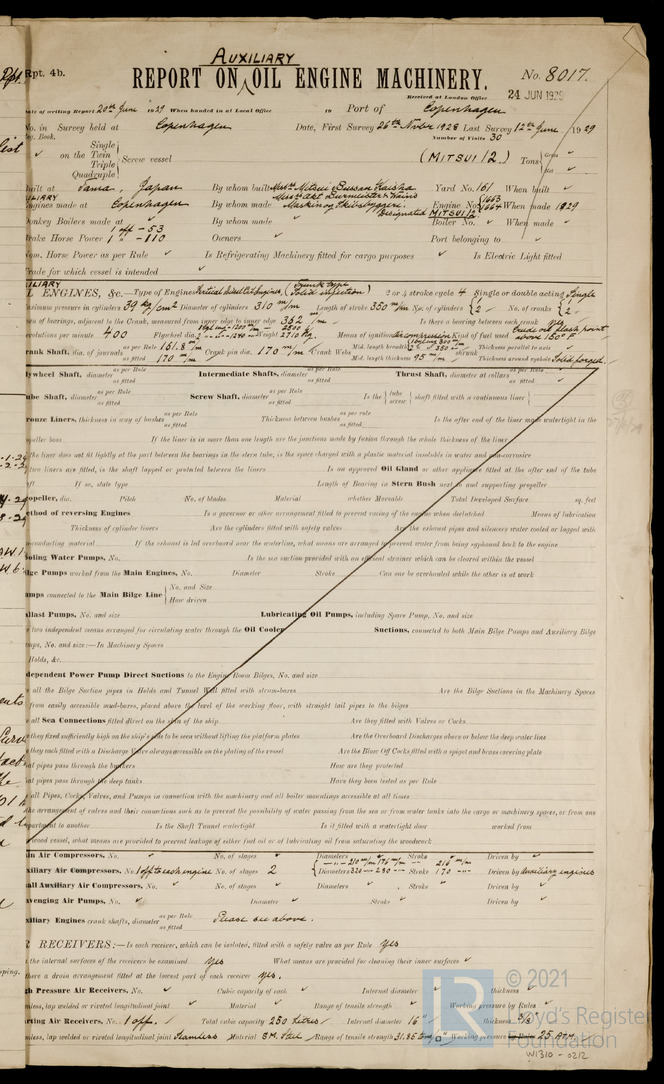 Rpt. 4b.
AUXILIARY
REPORT ON OIL ENGINE MACHINERY.
No. 8017.
Received at London Office 24 JUN 1929
Date of writing Report 20th June 1929 When handed in at Local Office 19 Port of Copenhagen
No. in Survey held at Copenhagen Date, First Survey 26th Novbr 1928 Last Survey 12th June 1929
Reg. Book. Number of Visits 30
Single
on the Twin
Triple
Quadruple
Screw vessel (MITSUI 12.) Tons
Built at Tama, Japan By whom built Messrs Mitsui Bussan Kaisha Yard No. 161 When built
Engines made at Copenhagen By whom made Messrs Akt. Burmeister & Wain's Maskin og Skibsbyggeri. Engine No. 1663 1664 When made 1929
Designated MITSUI 12.
Donkey Boilers made at By whom made Boiler No. When made
1 off - 53
Brake Horse Power 1 " - 110 Owners Port belonging to
Nom. Horse Power as per Rule Is Refrigerating Machinery fitted for cargo purposes Is Electric Light fitted
Trade for which vessel is intended
OIL ENGINES, &c. Type of Engines Vertical Diesel Oil Engines, (Trunk type Solid injection) 2 or 4 stroke cycle 4 Single or double acting Single
Maximum pressure in cylinders 39 kg/cm2 Diameter of cylinders 310 m/m Length of stroke 350 m/m No. of cylinders 2 No. of cranks 2
Span of bearings, adjacent to the Crank, measured from inner edge to inner edge 362 m/m Is there a bearing between each crank yes
Revolutions per minute 400 Flywheel dia. Weight 2710 kg. Means of ignition Compression Kind of fuel used Crude oil flash point above 150° F
Crank Shaft, dia. of journals as per Rule 161.8 m/m as fitted 170 m/m Crank pin dia. 170 m/m Crank Webs Mid. length breadth Mid. length thickness 95 m/m shrunk Thickness parallel to axis Thickness around eyehole Solid forged.
Flywheel Shaft, diameter as per Rule as fitted Intermediate Shafts, diameter as per Rule as fitted Thrust Shaft, diameter at collars as per Rule as fitted
Tube Shaft, diameter as per Rule as fitted Screw Shaft, diameter as per Rule as fitted Is the tube screw shaft fitted with a continuous liner
Bronze Liners, thickness in way of bushes as per Rule as fitted Thickness between bushes as per rule as fitted Is the after end of the liner made watertight in the
propeller boss If the liner is in more than one length are the junctions made by fusion through the whole thickness of the liner
If the liner does not fit tightly at the part between the bearings in the stern tube, is the space charged with a plastic material insoluble in water and non-corrosive
If two liners are fitted, is the shaft lapped or protected between the liners Is an approved Oil Gland or other appliance fitted at the after end of the tube
shaft If so, state type Length of Bearing in Stern Bush next to and supporting propeller
Propeller, dia. Pitch No. of blades Material whether Moveable Total Developed Surface sq. feet
Method of reversing Engines Is a governor or other arrangement fitted to prevent racing of the engine when declutched Means of lubrication
Thickness of cylinder liners Are the cylinders fitted with safety valves Are the exhaust pipes and silencers water cooled or lagged with
non-conducting material If the exhaust is led overboard near the waterline, what means are arranged to prevent water from being syphoned back to the engine
Cooling Water Pumps, No. Is the sea suction provided with an efficient strainer which can be cleared within the vessel
Bilge Pumps worked from the Main Engines, No. Diameter Stroke Can one be overhauled while the other is at work
Pumps connected to the Main Bilge Line No. and Size How driven
Ballast Pumps, No. and size Lubricating Oil Pumps, including Spare Pump, No. and size
Are two independent means arranged for circulating water through the Oil Cooler Suctions, connected to both Main Bilge Pumps and Auxiliary Bilge
Pumps, No. and size:—In Machinery Spaces
In Holds, &c.
Independent Power Pump Direct Suctions to the Engine Room Bilges, No. and size
Are all the Bilge Suction pipes in Holds and Tunnel Well fitted with strum-boxes Are the Bilge Suctions in the Machinery Spaces
led from easily accessible mud-boxes, placed above the level of the working floor, with straight tail pipes to the bilges
Are all Sea Connections fitted direct on the skin of the ship Are they fitted with Valves or Cocks
Are they fixed sufficiently high on the ship's side to be seen without lifting the platform plates Are the Overboard Discharges above or below the deep water line
Are they each fitted with a Discharge Valve always accessible on the plating of the vessel Are the Blow Off Cocks fitted with a spigot and brass covering plate
What pipes pass through the bunkers How are they protected
What pipes pass through the deep tanks Have they been tested as per Rule
Are all Pipes, Cocks, Valves, and Pumps in connection with the machinery and all boiler mountings accessible at all times
Is the arrangement of valves and their connections such as to prevent the possibility of water passing from the sea or from water tanks into the cargo or machinery spaces, or from one
compartment to another Is the Shaft Tunnel watertight Is it fitted with a watertight door worked from
If a wood vessel, what means are provided to prevent leakage of either fuel oil or of lubricating oil from saturating the woodwork
Main Air Compressors, No. No. of stages Diameters Stroke Driven by
Auxiliary Air Compressors, No. 1 off to each engine No. of stages 2 Diameters Stroke Driven by Auxiliary engines
Small Auxiliary Air Compressors, No. No. of stages Diameters Stroke Driven by
Scavenging Air Pumps, No. Diameter Stroke Driven by
Auxiliary Engines crank shafts, diameter as per Rule as fitted Please see above.
AIR RECEIVERS:—Is each receiver, which can be isolated, fitted with a safety valve as per Rule Yes
Can the internal surfaces of the receivers be examined Yes What means are provided for cleaning their inner surfaces
Is there a drain arrangement fitted at the lowest part of each receiver Yes.
High Pressure Air Receivers, No. Cubic capacity of each Internal diameter thickness
Seamless, lap welded or riveted longitudinal joint Material Range of tensile strength Working pressure by Rules
Starting Air Receivers, No. 1 off. Total cubic capacity 250 litres Internal diameter 16" thickness 3/8
Seamless, lap welded or riveted longitudinal joint Seamless Material S.M. Steel Range of tensile strength 31.85 tons Working pressure by Rules 25 atm
LR
© 2021
Lloyd's Register
Foundation
W1310-0212